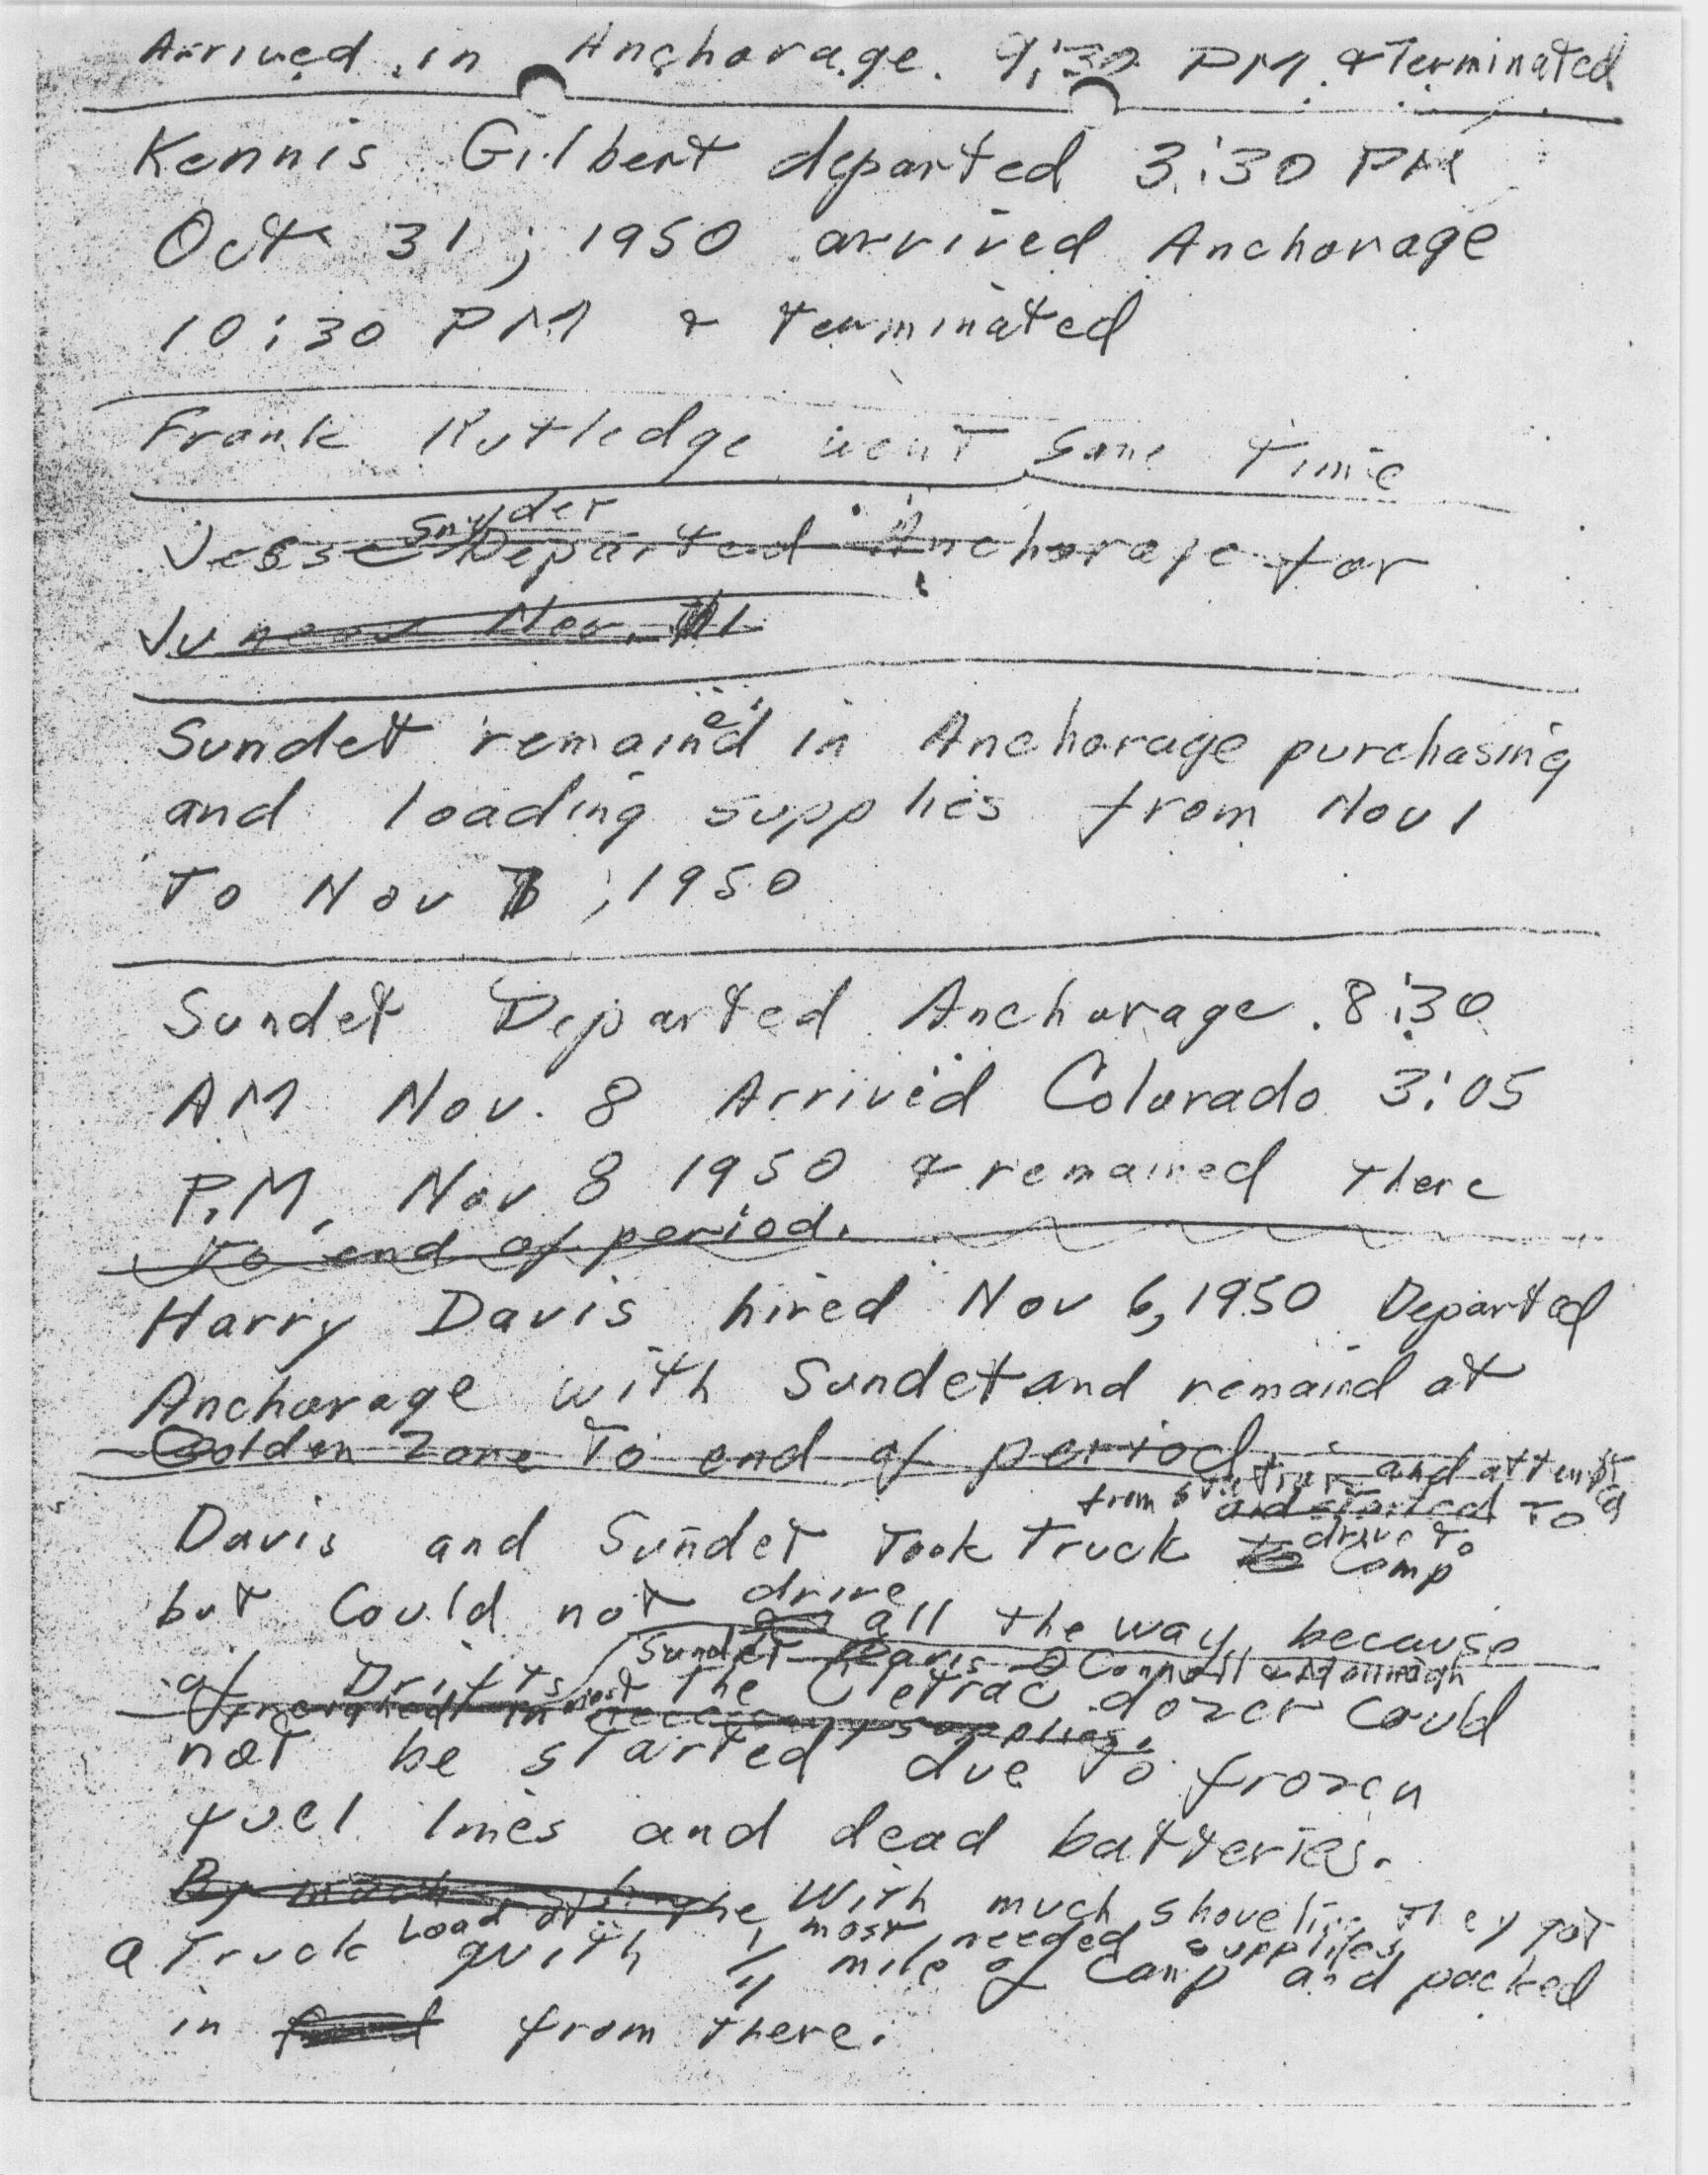 Arrived in Anchorage. 9:30 PM. & Terminated
Kennis Gilbert departed 3:30 PM
Oct 31, 1950 arrived Anchorage
10:30 PM & terminated
Frank Rutledge went same time
Jesse Snyder Departed Anchorage for
Juneau Nov. 1
Sundet remained in Anchorage purchasing
and loading supplies from Nov 1
To Nov 7, 1950
Sundet Departed Anchorage. 8:30
AM Nov. 8 Arrived Colorado 3:05
P.M. Nov 8 1950 & remained there
to end of period.
Harry Davis hired Nov 6, 1950 Departed
Anchorage with Sundet and remaind at
Golden Zone To end of period
from station and attempted
and started To
Davis and Sundet Took Truck to drive to Camp
but Could not drive all the way because
Sundet Davis O Connell and
of Drifts the Cletrac dozer could
most necessary supplies.
not be started due to frozen
fuel lines and dead batteries.
By much With much shoveling They got
Load of most needed supplies
a Truck with 1/4 mile of Camp and packed
in from there.